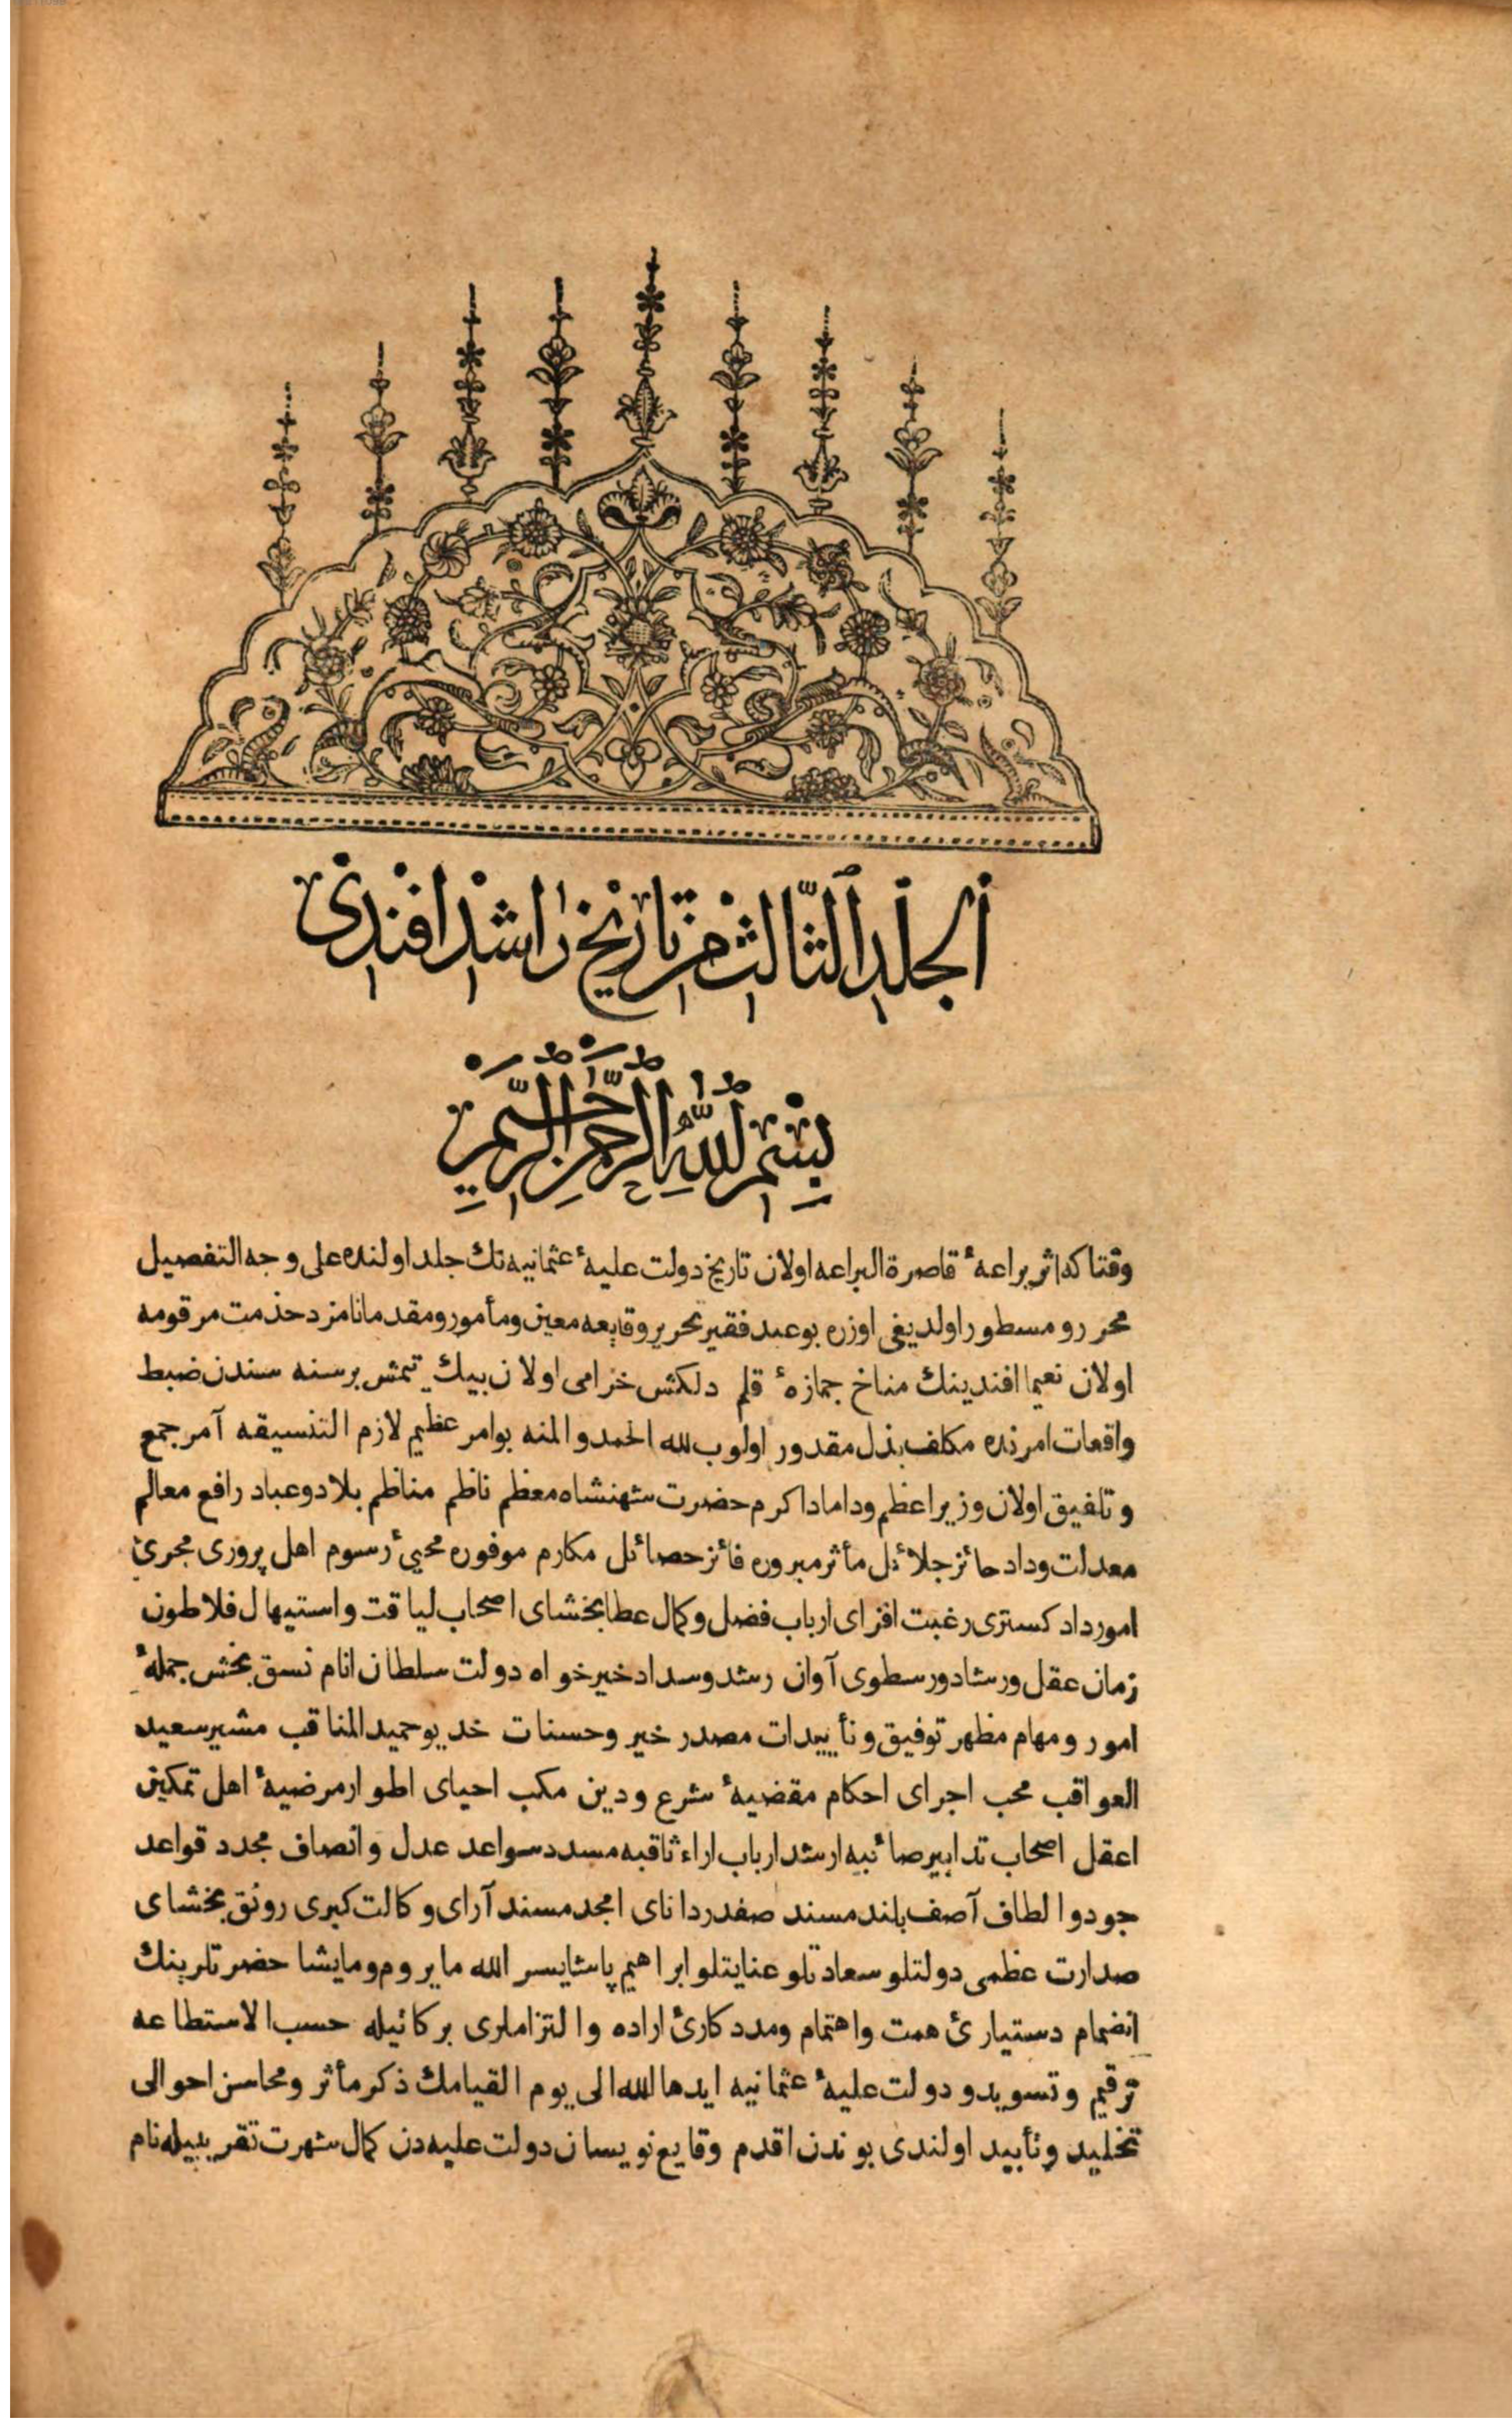 الجلد الثالث من تاريخ راشد افندى
بسم الله الرحمن الرحيم
وقتاكه اثر براعهٔ قاصرة البراعه اولان تاريخ دولت عليهٔ عثمانيه نك جلد اولنده على وجه التفصيل
محرر ومسطور اولديغى اوزره بو عبد فقير تحرير وقايعه معين ومأمور ومقدما نامزد خدمت مرقومه
اولان نعيما افندينك مناخ جمازهٔ قلم دلكش خرامى اولان بيك يتمش برسنه سندن ضبط
واقعات امرنده مكلف بذل مقدور اولوب لله الحمد والمنه بوامر عظيم لازم التنسيقه آمر جمع
وتلفيق اولان وزير اعظم وداماد اكرم حضرت شهنشاه معظم ناظم مناظم بلاد وعباد رافع معالم
معدلت وداد حائز جلائل مأثر مبروره فائز حصائل مكارم موفوره محيئ رسوم اهل پرورى مجرئ
امور داد كسترى رغبت افزاى ارباب فضل وكمال عطا بخشاى اصحاب لياقت واستيهال فلاطون
زمان عقل ورشاد ورسطوى آوان رشد وسداد خيرخواه دولت سلطان انام نسق بخش جملهٔ
امور ومهام مظهر توفيق وتأييدات مصدر خير وحسنات خديو حميد المناقب مشير سعيد
العواقب محب اجراى احكام مقضيهٔ شرع ودين مكب احياى اطوار مرضيهٔ اهل تمكين
اعقل اصحاب تدابير صائبه ارشد ارباب اراء ثاقبه مسدد سواعد عدل وانصاف مجدد قواعد
جود والطاف آصف بلند مسند صفدر داناى امجد مسند آراى وكالت كبرى رونق بخشاى
صدارت عظمى دولتلو سعادتلو عنايتلو ابراهيم پاشا يسر الله ما يروم وما يشا حضرتلرينك
انضمام دستيارئ همت واهتمام ومددكارئ اراده والتزاملرى بركاتيله حسب الاستطاعه
ترقيم وتسويد ودولت عليهٔ عثمانيه ايدها الله الى يوم القيامك ذكر مأثر ومحاسن احوالى
تخليد وتأبيد اولندى بوندن اقدم وقايع نويسان دولت عليه دن كمال شهرت تقريبيله نام